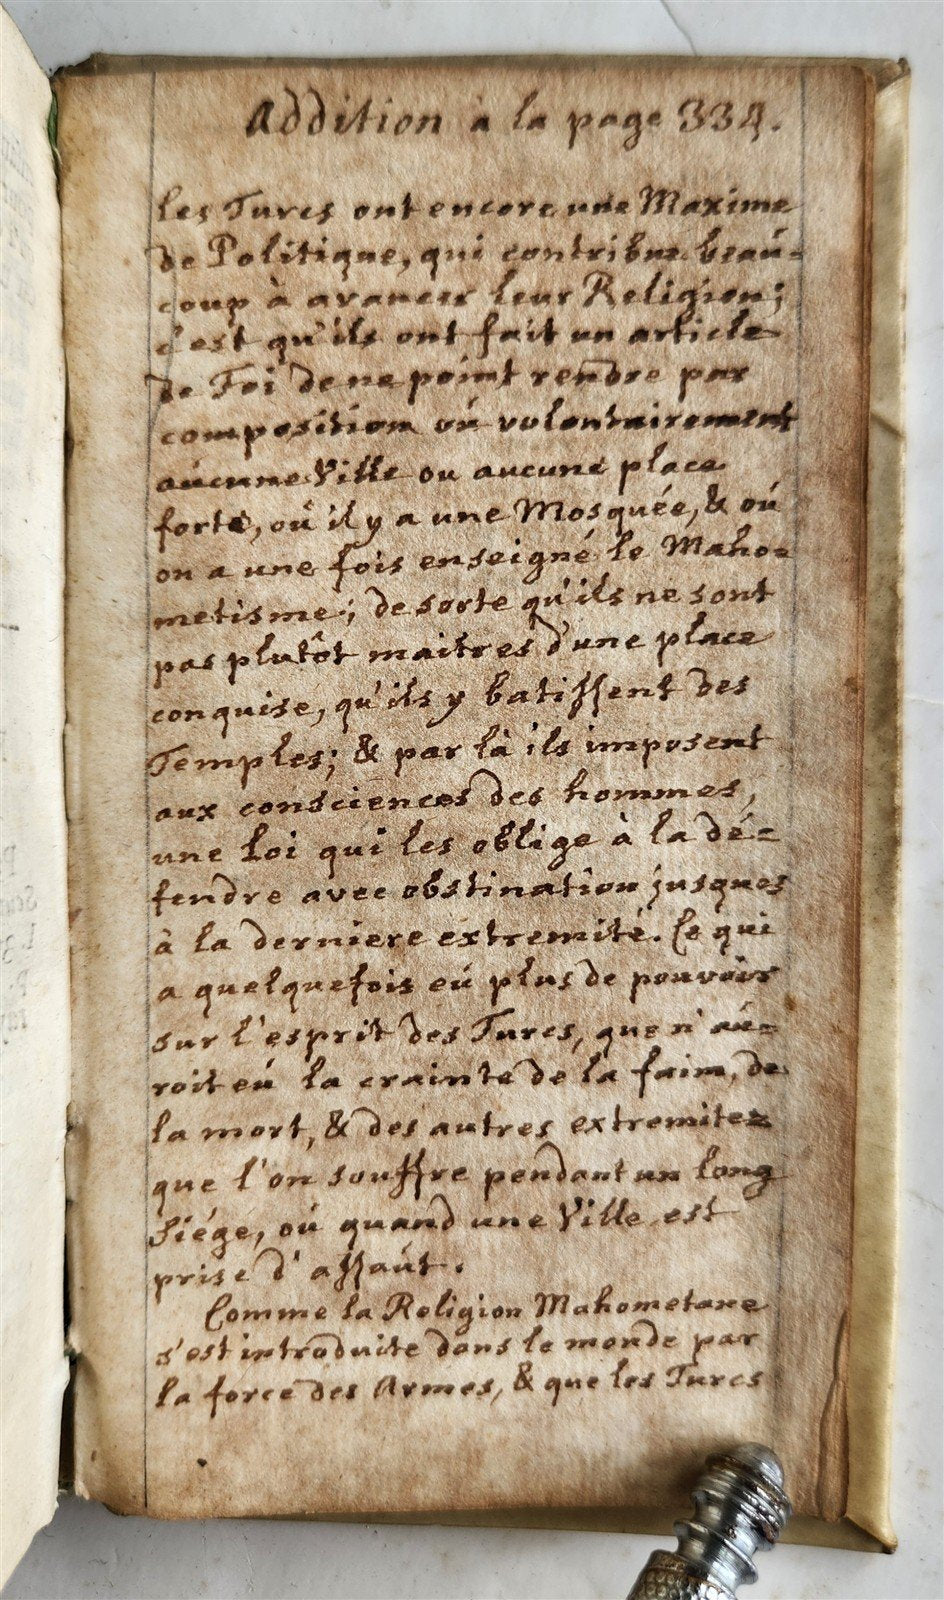 Addition à la page 334.
les Turcs ont encore une Maxime
de Politique, qui contribue beaú-
coup à avancer leur Religion;
c'est qu'ils ont fait un article
de Foi de ne point rendre par
composition oú volontairement
aúcune Ville ou aucune place
forte, oú il y a une Mosquée, & oú
on a une fois enseigné le Maho-
metisme; de sorte qu'ils ne sont
pas plutôt maitres d'une place
conquise, qu'ils y batissent des
Temples; & par là ils imposent
aux consciences des hommes,
une Loi qui les oblige à la dé-
fendre avec obstination jusques
à la derniere extremité. Ce qui
a quelquefois eú plus de pouvoir
sur l'esprit des Turcs, que n'aú-
roit eú la crainte de la faim, de
la mort, & des autres extremitez
que l'on souffre pendant un long
Siége, oú quand une Ville est
prise d'assaút.
Comme la Religion Mahometane
s'est introduite dans le monde par
la force des Armes, & que les Turcs